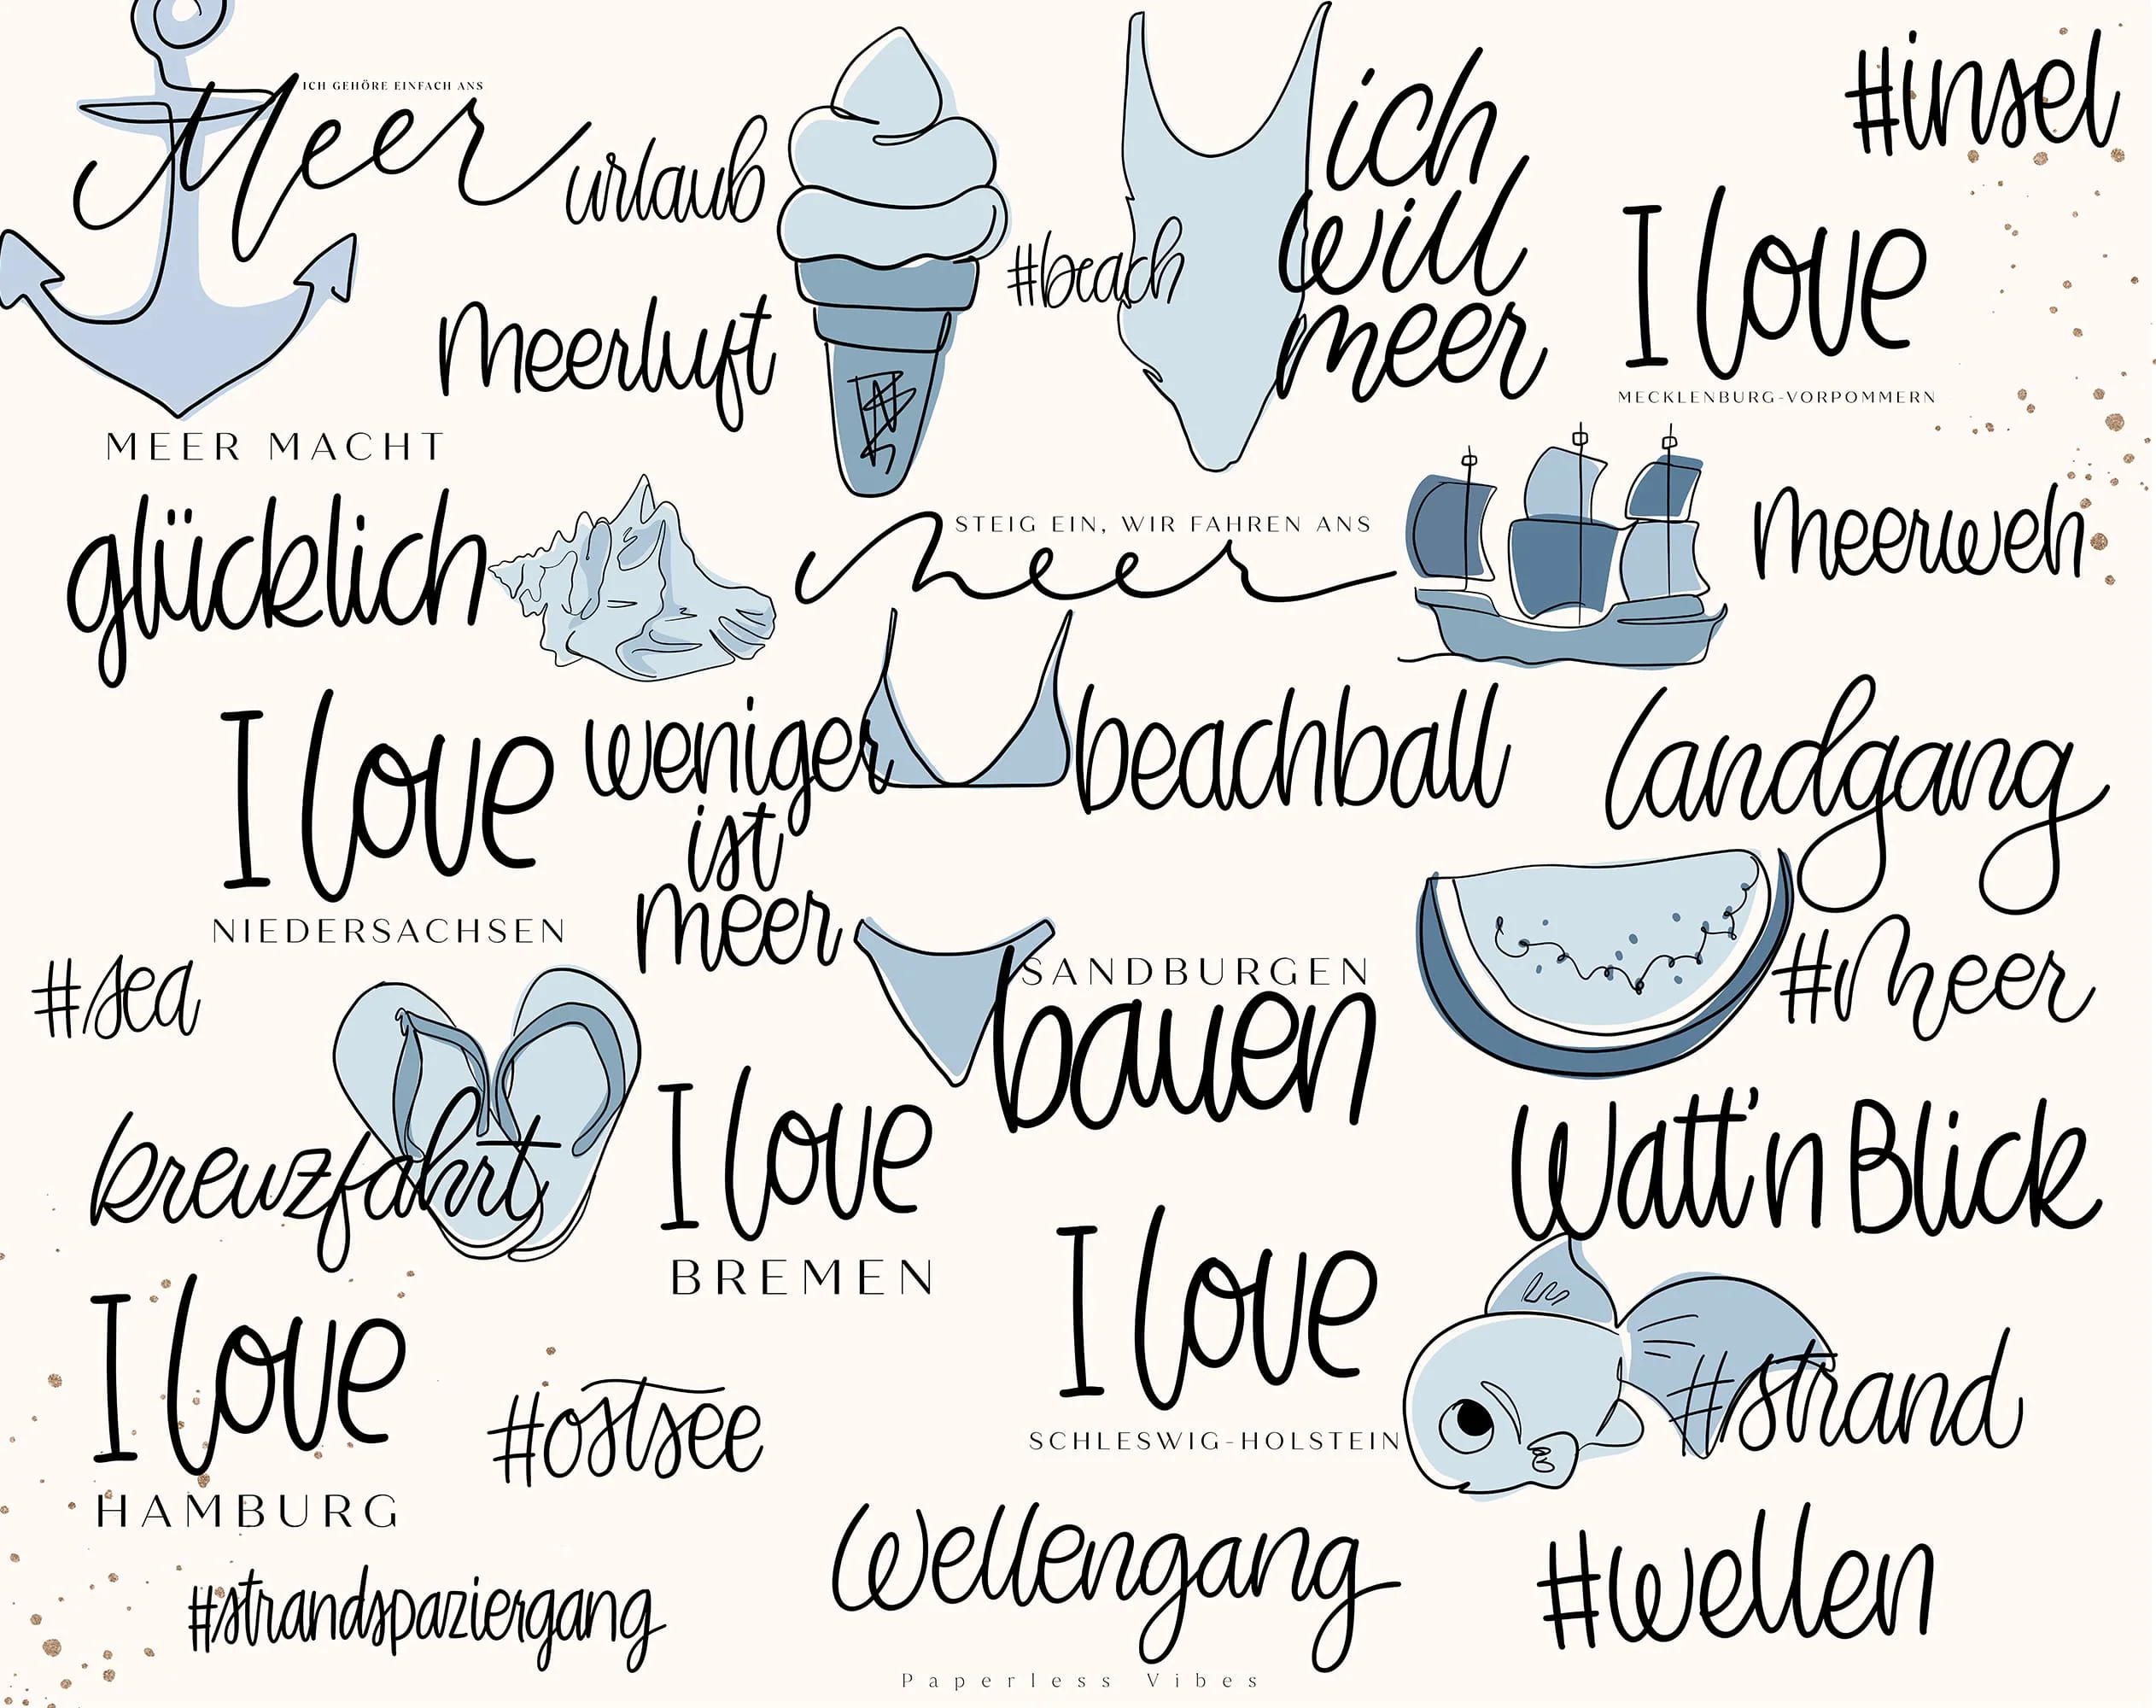 ICH GEHÖRE EINFACH ANS
Meer
urlaub
meerluft
#beach
ich
will
meer
#insel
I love
MECKLENBURG-VORPOMMERN
MEER MACHT
glücklich
STEIG EIN, WIR FAHREN ANS
meer
meerweh
I love
NIEDERSACHSEN
weniger
ist
meer
beachball
landgang
#sea
SANDBURGEN
bauen
#meer
kreuzfahrt
I love
BREMEN
Watt'n Blick
I love
HAMBURG
#ostsee
I love
SCHLESWIG-HOLSTEIN
#strand
#strandspaziergang
Wellengang
#wellen
Paperless Vibes